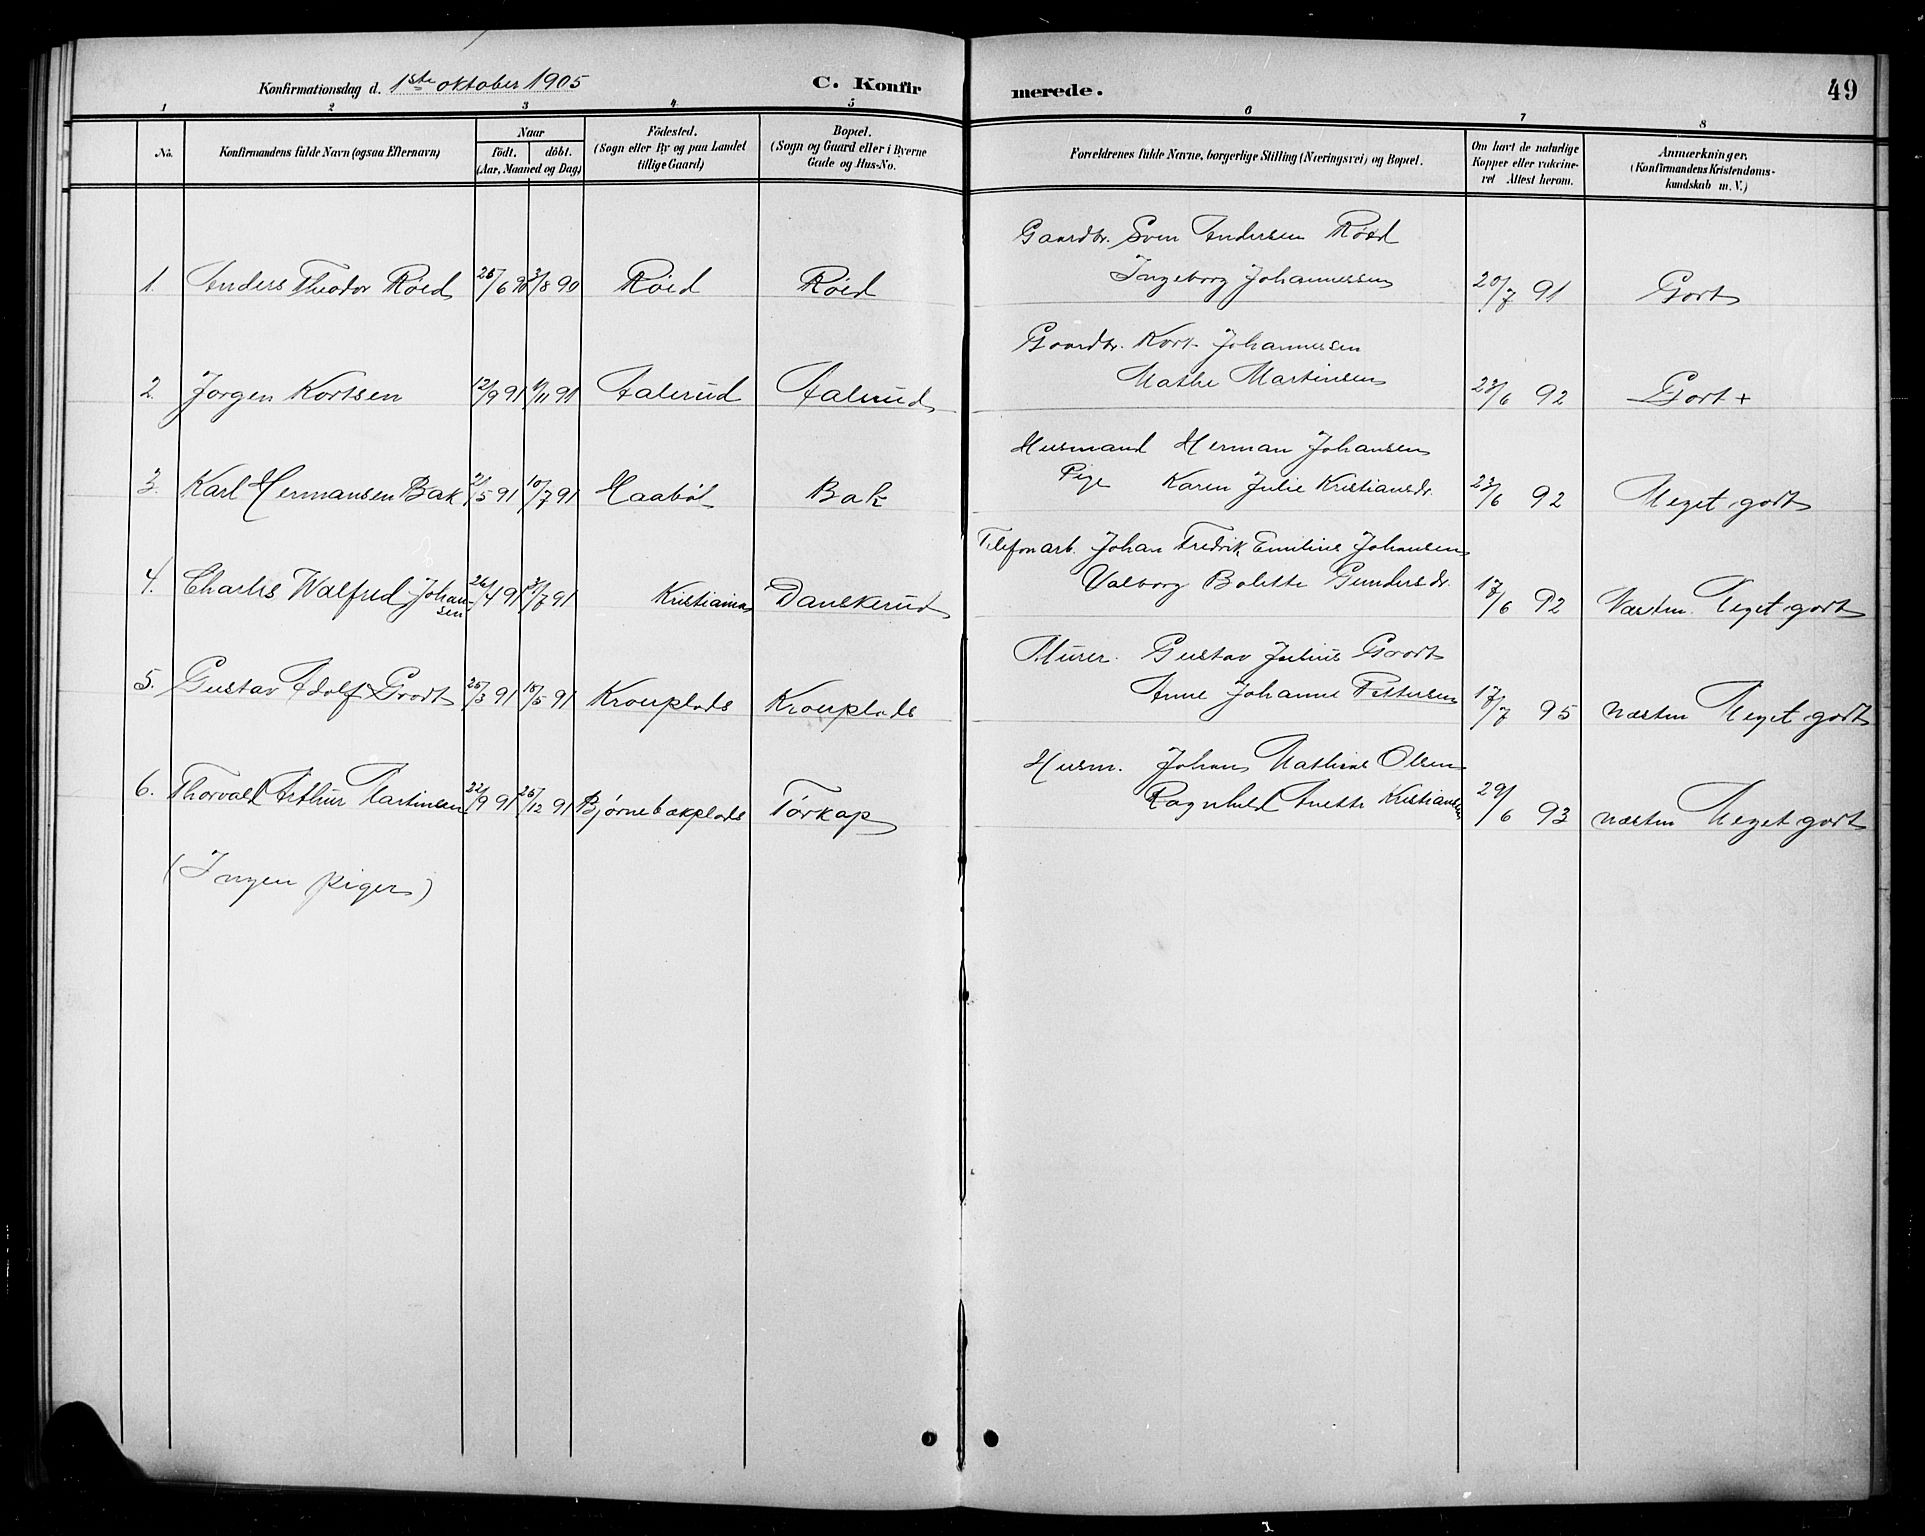 Konfirmationsdag d. 1ste oktober 1905 C. Konfir merede. 49
1 2 3 4 5 6 7 8
No. Konfirmandens fulde Navn (ogsaa Efternavn) Naar født. døbt. (Aar, Maaned og Dag) Födested. (Sogn eller By og paa Landet tillige Gaard) Bopæl. (Sogn og Gaard eller i Byerne Gade og Hus-No. Forældrenes fulde Navne, borgerlige Stilling (Næringsvei) og Bopæl. Om havt de naturlige Kopper eller vakcineret Attest herom. Anmærkninger. (Konfirmandens Kristendomskundskab m. V.)
Gaardbr. Sven Andersen Röed
1. Anders Theodor Röed 26/6 90 3/8 90 Röed Röed Ingeborg Johannessen 20/7 91 Godt
Gaardbr. Kort Johannessen
2. Jørgen Kortsen 12/9 91 1/11 91 Aalerud Aalerud Mathe Martinsen 23/6 92 Godt +
Husmand Herman Johansen
3. Karl Hermansen Bak 21/5 91 10/7 91 Haabøl Bak Pige Karen Julie Kristiansdr. 23/6 92 Meget godt
Telefonarb. Johan Fredrik Emilius Johansen
4. Charles Walfred Johansen 26/4 91 3/7 91 Kristiania Danskerud Valborg Bolette Gundersdr. 17/6 92 Næsten Meget godt
Murer. Gustav Julius Grodt
5. Gustav Adolf Grodt 25/3 91 18/5 91 Kroerplads Kroerplads Anne Johanne Pettersen 17/7 95 næsten Meget godt
Husm. Johan Mathias Olsen
6. Thorvald Arthur Martinsen 22/9 91 26/12 91 Bjørnebækplads Tørkop Ragnhild Anette Kristiansen 29/6 93 næsten Meget godt
(Ingen piger)